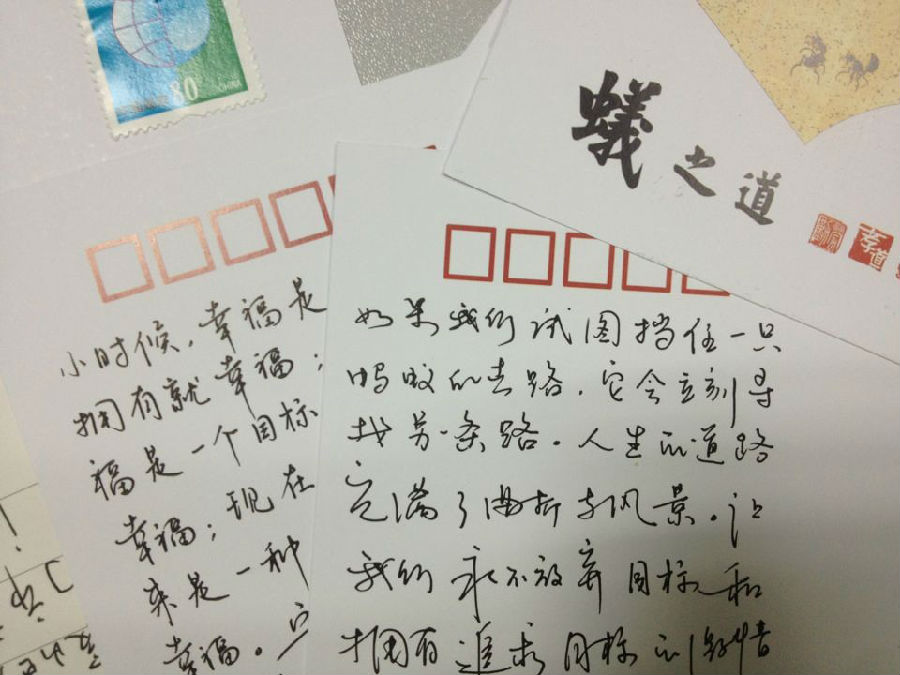 80
CHINA
蟻之道
孝道
小时候,幸福是
拥有就幸福;
福是一个目标
幸福;现在
来是一种
幸福。
如果我们试图挡住一只
蚂蚁的去路,它会立刻寻
找另一条路。人生的道路
充满了曲折与风景。让
我们永不放弃目标和
拥有追求目标的激情